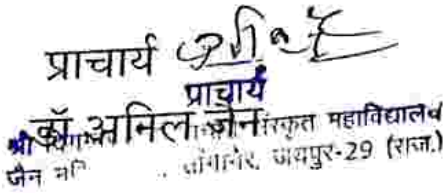 प्राचार्य
प्राचार्य
डॉ अनिल जैन
श्री संस्कृत महाविद्यालय
जैन सांगानेर, जयपुर-29 (राज.)